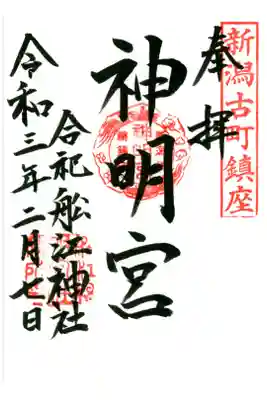 新潟古町鎮座
奉拝
神明宮
合祀船江神社
令和三年二月七日